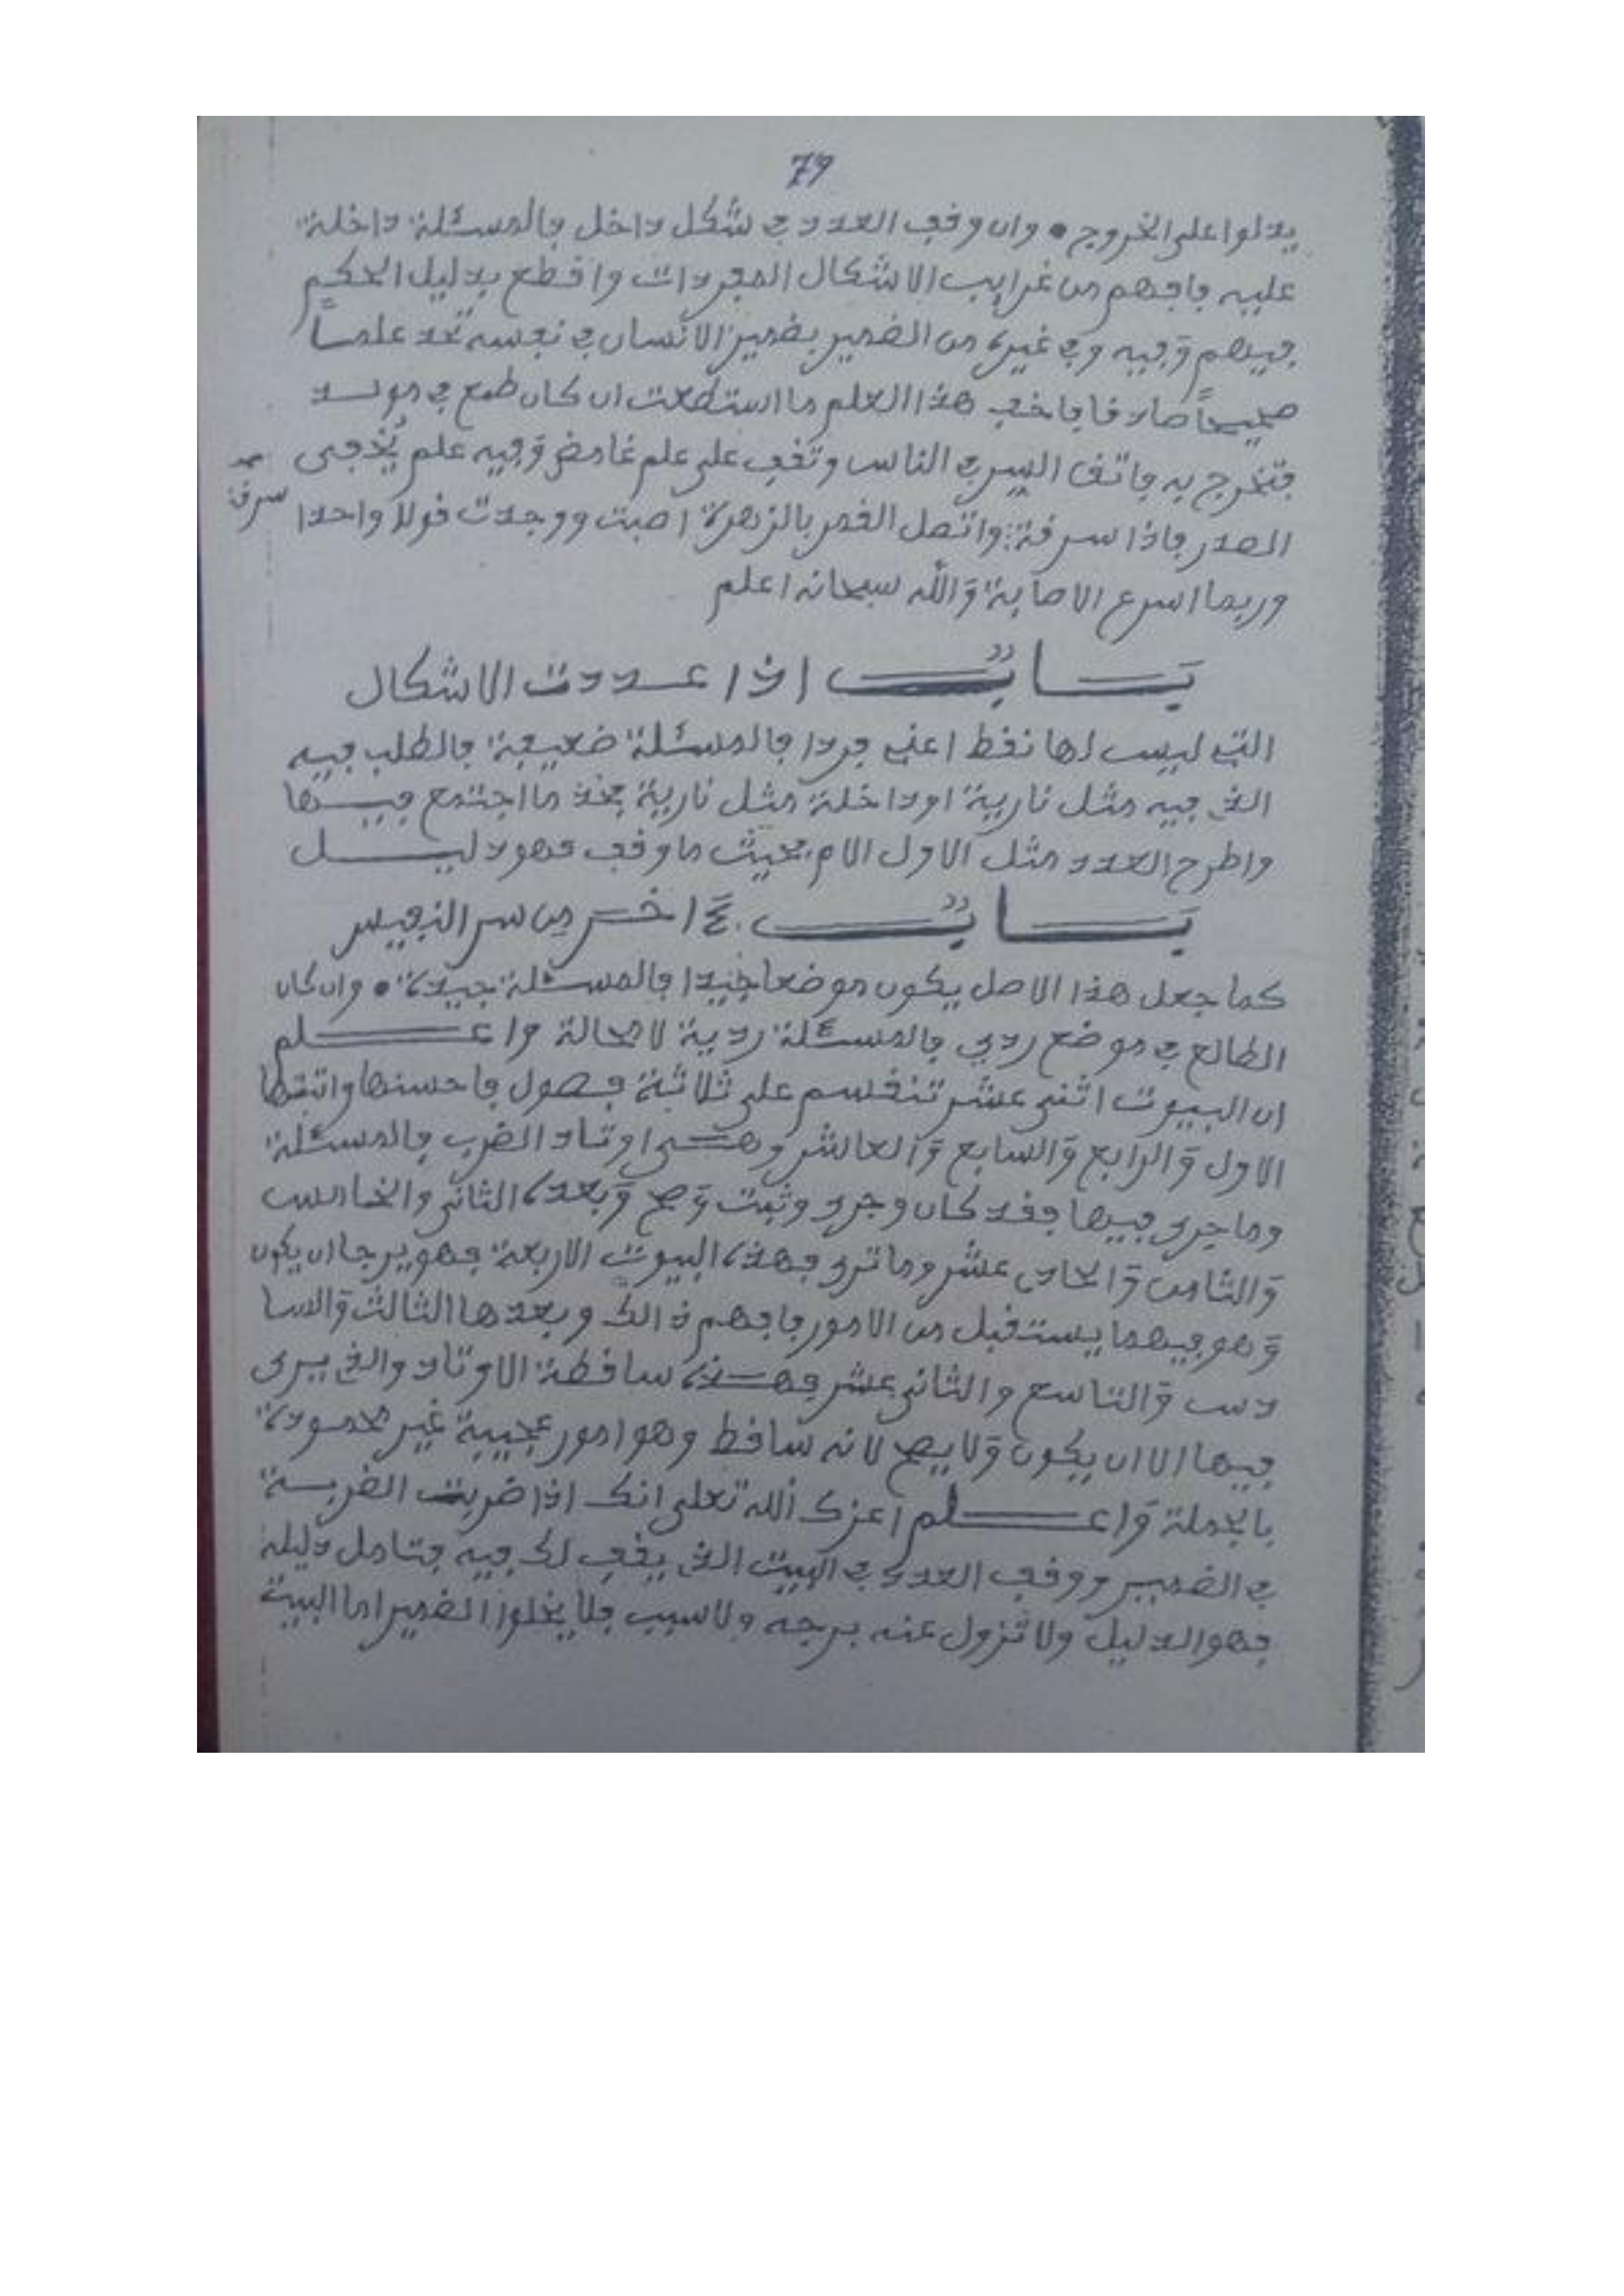 79
يدلوا على الخروج • وان وقف العدد في شكل داخل فالمسئلة داخلة
عليه فافهم من غرايب الاشكال المفردات واقطع بدليل الحكم
فيهم وفيه وفي غيره من الضمير بضمير الانسان في نفسه تجد علما
صحيحاً صادقا فاخف هذا العلم ما استطعت ان كان طبع في مولد
فتخرج به فاتق السر في الناس وتقف على علم غامض وفيه علم يخفى
الصدر فاذا سرفة واتصل القمر بالزهرة اصبت ووجدت قولا واحدا سرقة
وربما اسرع الاصابة والله سبحانه اعلم
باب اذا عددت الاشكال
التي ليس لها نقط اعني فردا فالمسئلة ضعيفة فالطلب فيه
الذي فيه مثل نارية او داخلة مثل نارية فخذ ما اجتمع فيها
واطرح العدد مثل الاول الام فحيث ما وقف فهو دليل
باب في اخر من سر النفيس
كما جعل هذا الاصل يكون موضعا جيدا فالمسئلة جيدة • وان كان
الطالع في موضع ردي فالمسئلة ردية لا محالة واعلم
ان البيوت اثنى عشر تنقسم على ثلاثة فصول فاحسنها واثبتها
الاول والرابع والسابع والعاشر وهي اوتاد الضرب فالمسئلة
وما جرى فيها فقد كان وجرى وثبت وصح وبعده الثاني والخامس
والثامن والحادي عشر وما ترى فهذه البيوت الاربعة فهو يرجا ان يكون
وهو فيهما يستقبل من الامور فافهم ذالك وبعدها الثالث والسا
دس والتاسع والثاني عشر فهذه ساقطة الاوتاد والذي يرى
فيها الا ان يكون ولا يصح لانه ساقط وهو امور عجيبة غير محمودة
بالجملة واعلم اعزك الله تعلى انك اذا ضربت الضربة
في الضمير ووقف العدد في البيت الذي يقف لك فيه فتامل دليله
فهو الدليل ولا تزول عنه برجه ولا سبب فلا يخلوا الضمير اما البيت